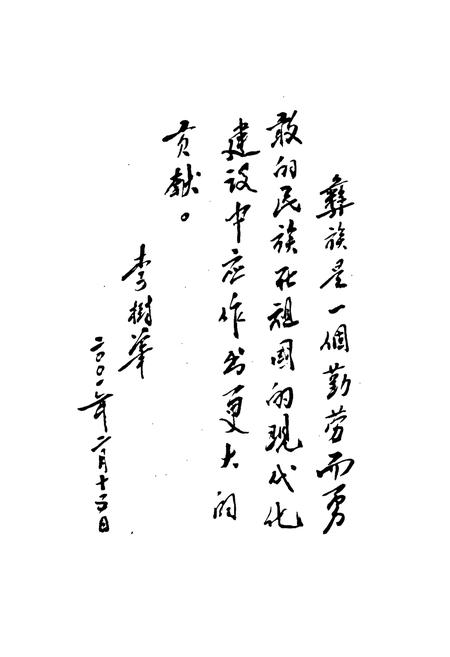 彝族是一個勤劳而勇
敢的民族在祖國的现代化
建设中应作出更大的
贡献。
李樹華
二〇〇一年二月十五日